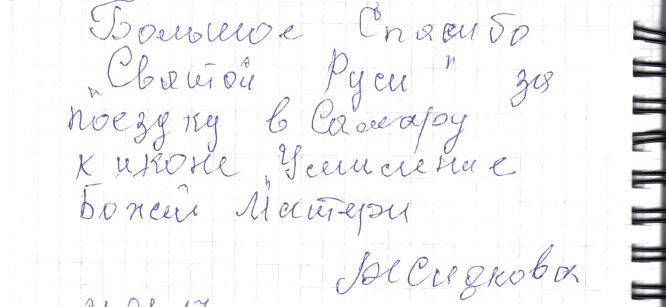 Большое Спасибо
"Святой Руси" за
поездку в Самару
к иконе "Умиление
Божей Матери